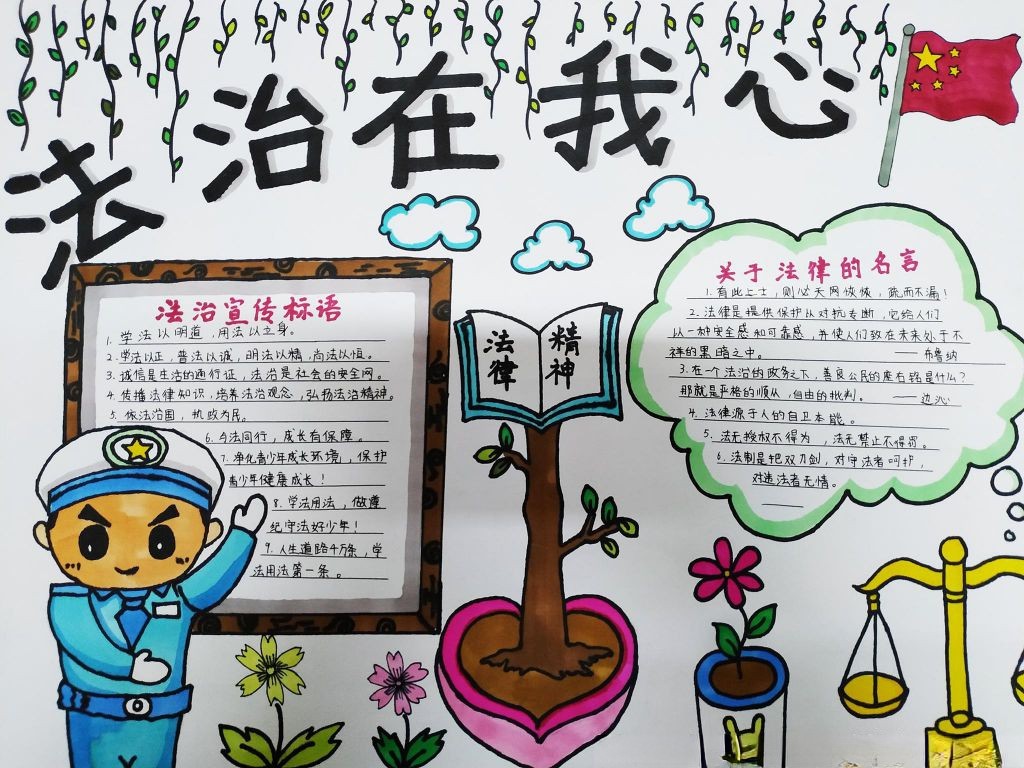 法治在我心
法治宣传标语
1. 学法以明道，用法以立身。
2. 学法以正，普法以诚，明法以精，尚法以恒。
3. 诚信是生活的通行证，法治是社会的安全网。
4. 传播法律知识，培养法治观念，弘扬法治精神。
5. 依法治国，执政为民。
6. 与法同行，成长有保障。
7. 净化青少年成长环境，保护
青少年健康成长！
8. 学法用法，做遵
纪守法好少年！
9. 人生道路千万条，学
法用法第一条。
法律
精神
关于法律的名言
1. 有此上士，则必天网恢恢，疏而不漏！
2. 法律是提供保护以对抗专断，它给人们
以一种安全感和可靠感，并使人们致在未来处于不
祥的黑暗之中。 ——布鲁纳
3. 在一个法治的政务之下，善良公民的座右铭是什么？
那就是严格的顺从，自由的批判。 ——边沁
4. 法律源于人的自卫本能。
5. 法无授权不得为，法无禁止不得罚。
6. 法制是把双刃剑，对守法者呵护，
对违法者无情。